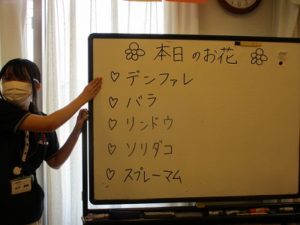 本日のお花
♡ デンファレ
♡ バラ
♡ リンドウ
♡ ソリダコ
♡ スプレーマム